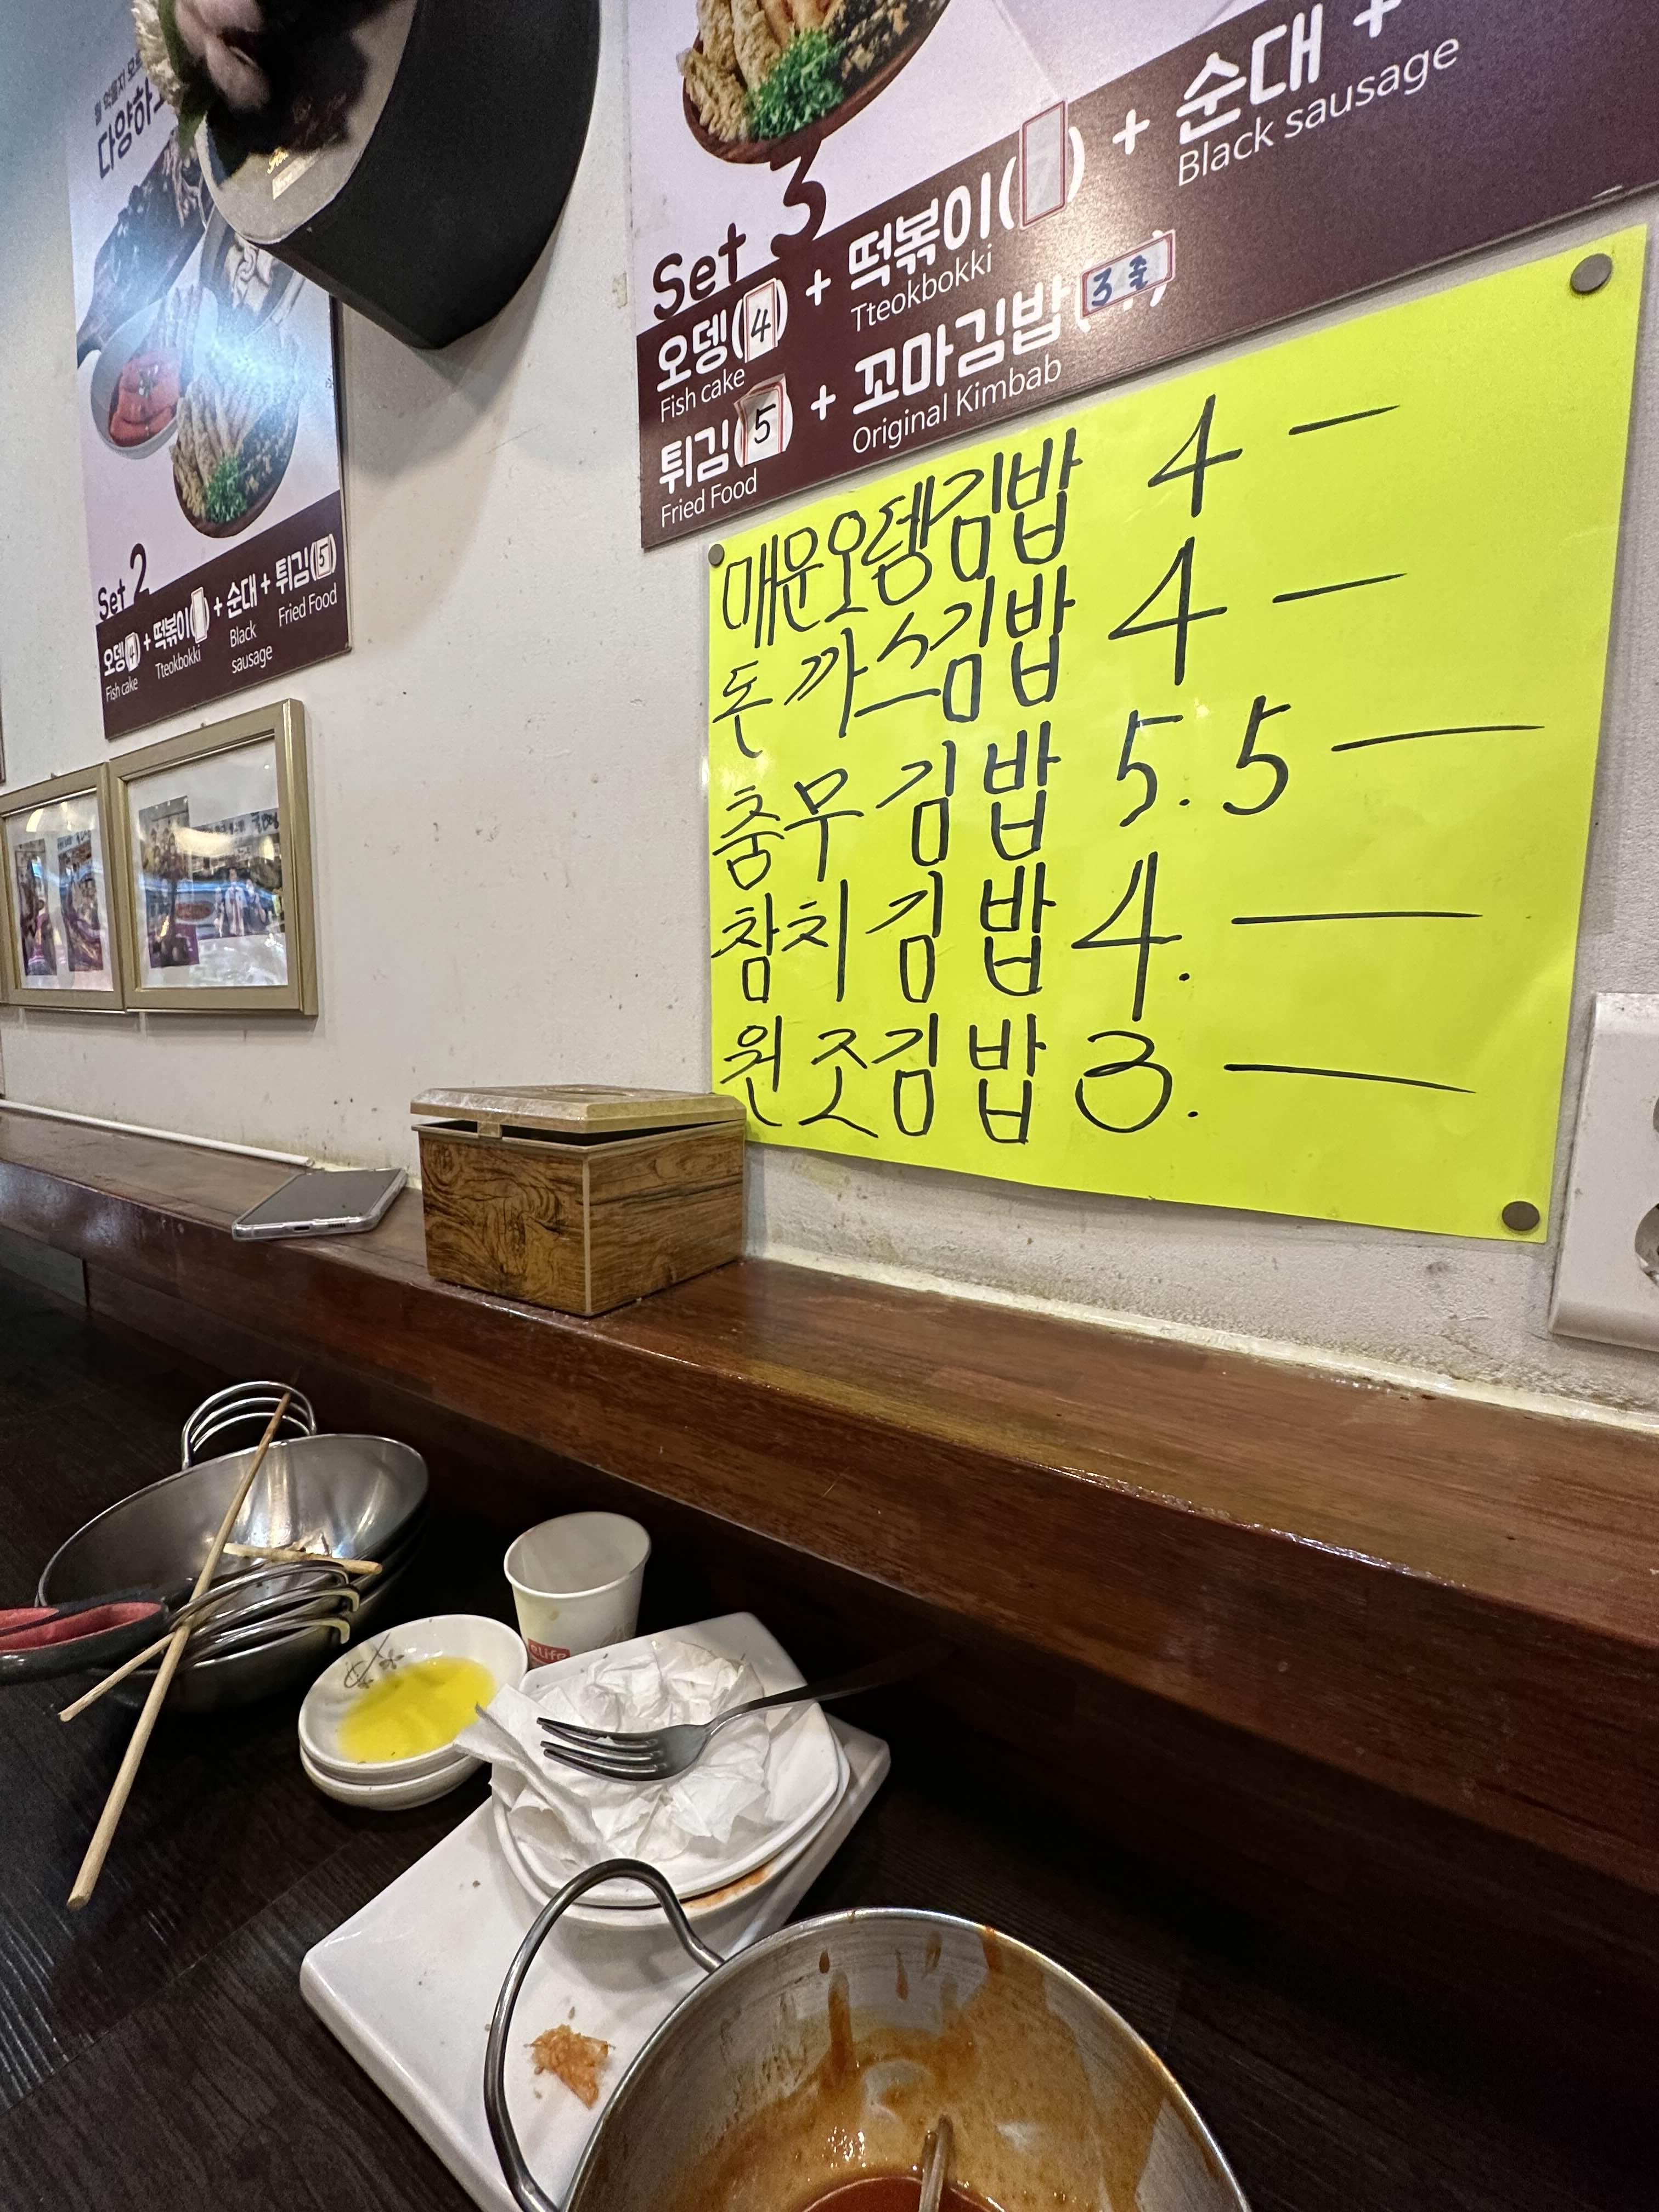 다양하
Set 2
오뎅(4) + 떡볶이( ) + 순대 + 튀김(5)
Fish cake Tteokbokki Black sausage Fried Food
Set 3
오뎅(4) + 떡볶이( ) + 순대 +
Fish cake Tteokbokki Black sausage
튀김(5) + 꼬마김밥(3줄)
Fried Food Original Kimbab
매운오뎅김밥 4 —
돈까스김밥 4 —
충무김밥 5.5 —
참치김밥 4. —
원조김밥 3. —